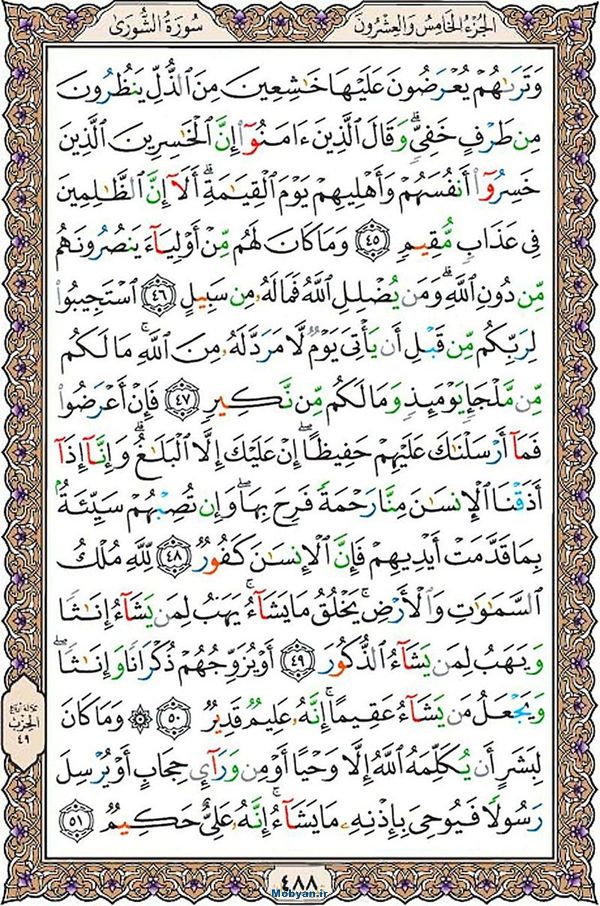 الجزء الخامس والعشرون
سورة الشورى
وَتَرَىٰهُمْ يُعْرَضُونَ عَلَيْهَا خَٰشِعِينَ مِنَ ٱلذُّلِّ يَنظُرُونَ
مِن طَرْفٍ خَفِىٍّۗ وَقَالَ ٱلَّذِينَ ءَامَنُوٓا۟ إِنَّ ٱلْخَٰسِرِينَ ٱلَّذِينَ
خَسِرُوٓا۟ أَنفُسَهُمْ وَأَهْلِيهِمْ يَوْمَ ٱلْقِيَٰمَةِۗ أَلَآ إِنَّ ٱلظَّٰلِمِينَ
فِى عَذَابٍ مُّقِيمٍ ٤٥ وَمَا كَانَ لَهُم مِّنْ أَوْلِيَآءَ يَنصُرُونَهُم
مِّن دُونِ ٱللَّهِۗ وَمَن يُضْلِلِ ٱللَّهُ فَمَا لَهُۥ مِن سَبِيلٍ ٤٦ ٱسْتَجِيبُوا۟
لِرَبِّكُم مِّن قَبْلِ أَن يَأْتِىَ يَوْمٌ لَّا مَرَدَّ لَهُۥ مِنَ ٱللَّهِۚ مَا لَكُم
مِّن مَّلْجَإٍ يَوْمَئِذٍ وَمَا لَكُم مِّن نَّكِيرٍ ٤٧ فَإِنْ أَعْرَضُوا۟
فَمَآ أَرْسَلْنَٰكَ عَلَيْهِمْ حَفِيظًاۖ إِنْ عَلَيْكَ إِلَّا ٱلْبَلَٰغُۗ وَإِنَّآ إِذَآ
أَذَقْنَا ٱلْإِنسَٰنَ مِنَّا رَحْمَةً فَرِحَ بِهَاۖ وَإِن تُصِبْهُمْ سَيِّئَةٌۢ
بِمَا قَدَّمَتْ أَيْدِيهِمْ فَإِنَّ ٱلْإِنسَٰنَ كَفُورٌ ٤٨ لِّلَّهِ مُلْكُ
ٱلسَّمَٰوَٰتِ وَٱلْأَرْضِۚ يَخْلُقُ مَا يَشَآءُۚ يَهَبُ لِمَن يَشَآءُ إِنَٰثًا
وَيَهَبُ لِمَن يَشَآءُ ٱلذُّكُورَ ٤٩ أَوْ يُزَوِّجُهُمْ ذُكْرَانًا وَإِنَٰثًاۖ
وَيَجْعَلُ مَن يَشَآءُ عَقِيمًاۚ إِنَّهُۥ عَلِيمٌ قَدِيرٌ ٥٠ ۞ وَمَا كَانَ
لِبَشَرٍ أَن يُكَلِّمَهُ ٱللَّهُ إِلَّا وَحْيًا أَوْ مِن وَرَآئِ حِجَابٍ أَوْ يُرْسِلَ
رَسُولًا فَيُوحِىَ بِإِذْنِهِۦ مَا يَشَآءُۚ إِنَّهُۥ عَلِىٌّ حَكِيمٌ ٥١
الحزب
٤٩
٤٨٨
Mobyan.ir